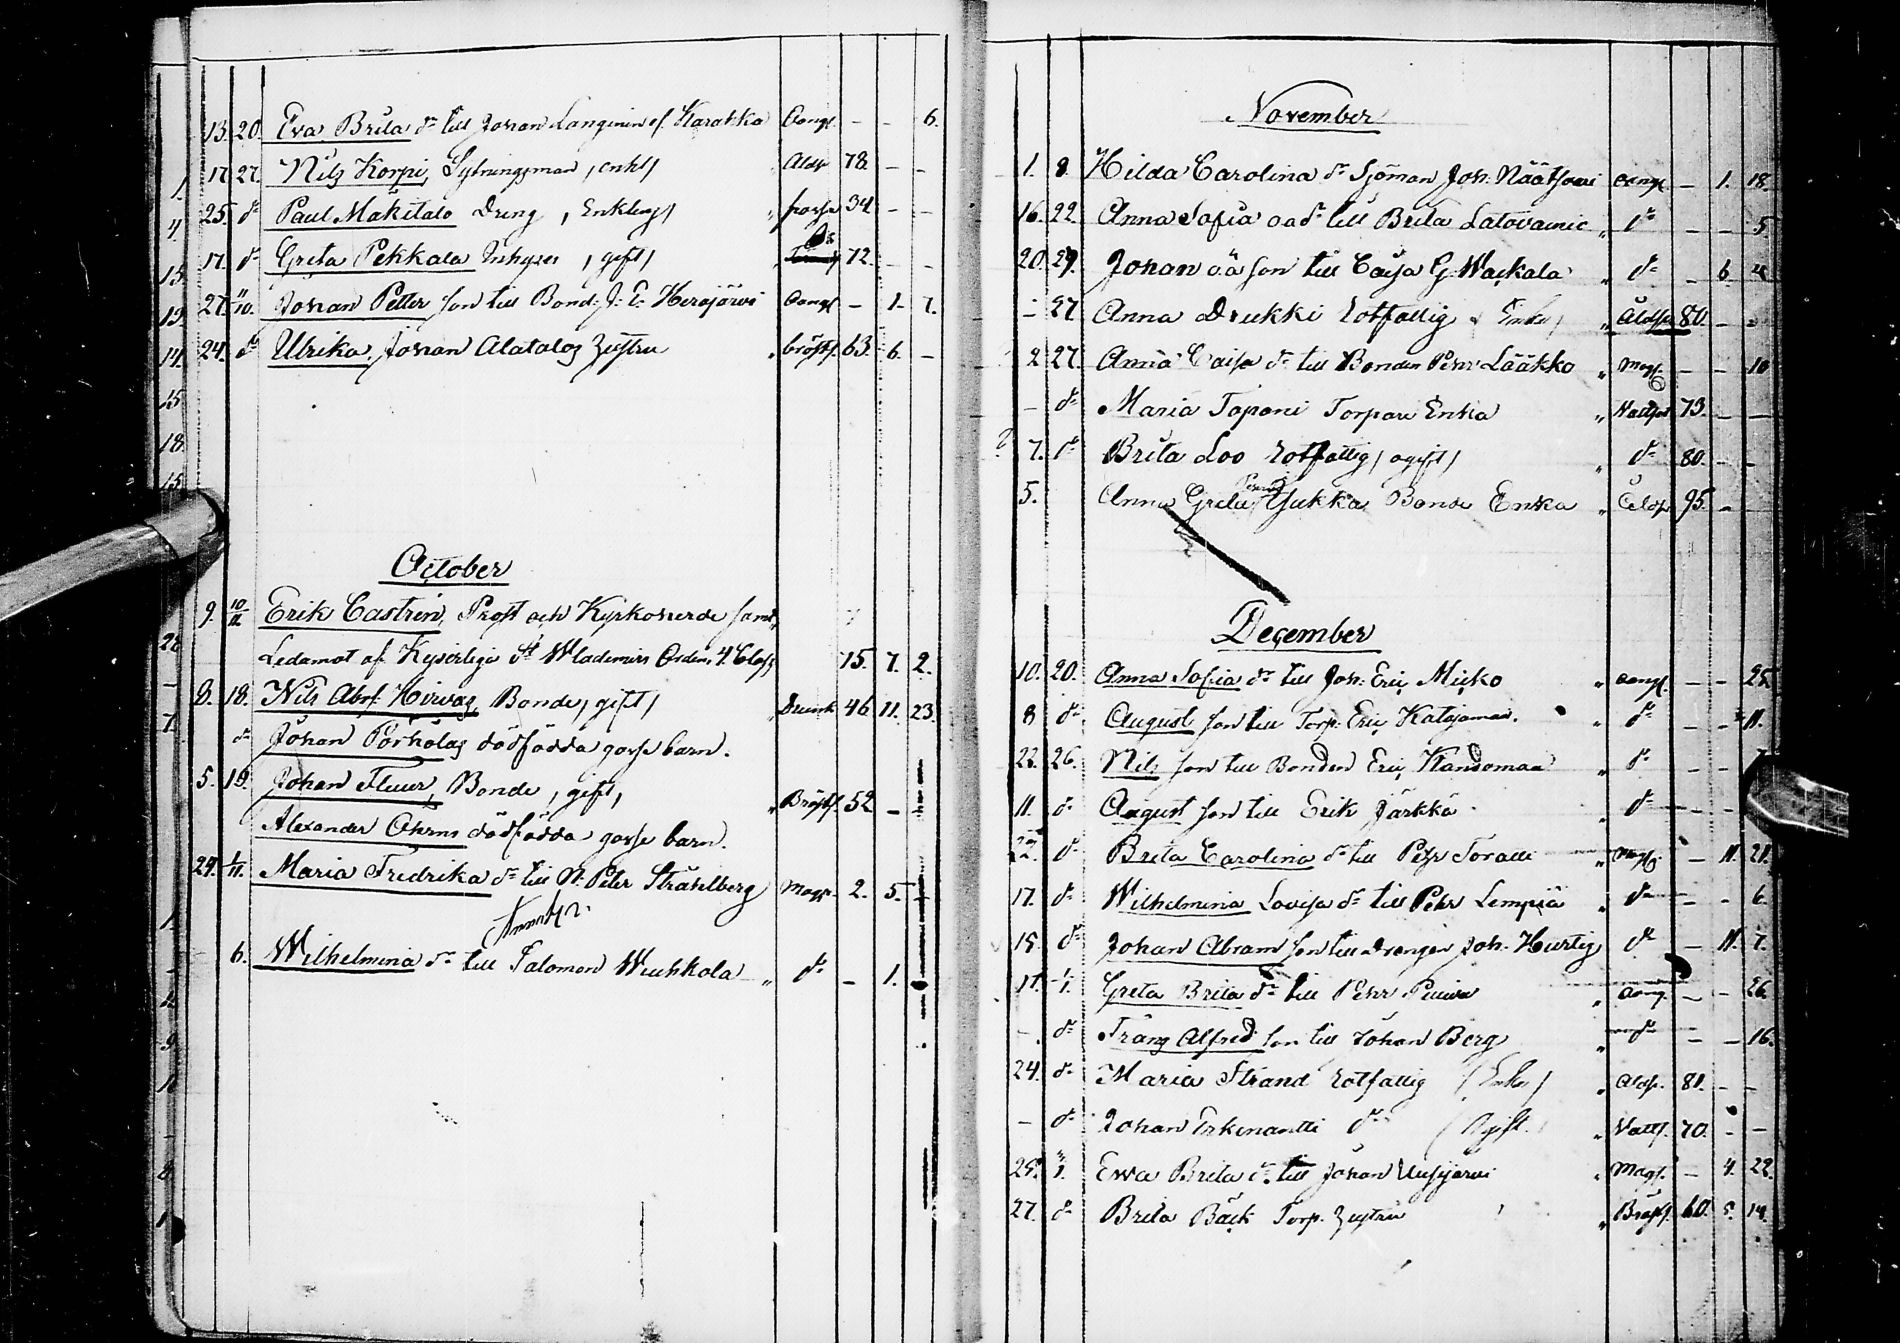 13. 20. Eva Brita dr till Johan Langinen of. Karahka Aangf - - 6.
17 27. Nils Korpi, Sytningsman, enkl/ Aldr 78 - -
25. do Paul Mäkitalo Dreng, Enkling/ 34 - -
17. do Greta Pekkala Inhyses, gift/ 72. - -
27. 11/10. Johan Petter son till Bond. J. E. Herajärvi Aangf - 1. 7.
24. do Ulrika, Johan Alatalos hustru bröstf. 63. 6. -
October
9. 10/11 Erik Castrén, Prost och Kyrkoherde samt
Ledamot af Kejserliga St Wladimirs Orden, 4. Class 75. 7. 2.
8. 18. Nils Abrf. Hirvas, Bonde, gift/ Drunk 46 11. 23.
do Johan Pörhölas dödfödda gosse barn.
5. 19. Johan Fluur, Bonde, gift, Bröstf. 52 -
Alexander Ohrns dödfödda gosse barn.
24. 1/11. Maria Fredrika dr till N. Peter Stråhlberg Magf. 2. 5.
6. Wilhelmina dr till Salomon Wuhkola do - 1.
November
1. 8. Hilda Carolina dr Sjöman Joh. Näätsaari Aangf - 1. 18.
16. 22. Anna Sofia oä dr till Brita Latovainio do - - 5
20. 29. Johan oä son till Caisa G. Wackala do - 6. 4
- 27 Anna Drukki rotfattig (Enka) Åldf. 80. - -
2 27. Anna Caisa dr till Bonden Pehr Lääkkö Magf. - - 10
- do Maria Taponi Torpare Enka Vattsot 73. - -
7. do Brita Loo rotfattig/ ogift/ do 80. - -
5. Anna Greta Jukka Bonde Enka Åldf 95. - -
December
10. 20. Anna Sofia dr till Joh. Eric Micko Aangf. - - 25
8 do August son till Torp. Eric Katajamaa. do - - 11.
22. 26. Nils son till Bonden Eric Kandomaa do - - 7
11. do August son till Erik Järkkä do - -
do Brita Carolina dr till Pehr Toratti Magf. - 11. 21.
17. do Wilhelmina Lovisa dr till Pehr Lempiä do - - 6.
15. do Johan Abram son till Drengen Joh. Hurtig do - 11. 7.
17. 1/1. Greta Brita dr till Pehr Aang. - - 26
- do Frans Alfred son till Johan Berg do - - 16.
24. do Maria Strand rotfattig (Enka) Åldf. 81. - -
- do Johan Erkinantti do (Ogift.) Vattf. 70. - -
25. Ewa Brita dr till Johan Uusijärvi Magf. - 4. 22.
27. do Brita Bäck Torp. hustru Bröstf. 60. 5. 14.